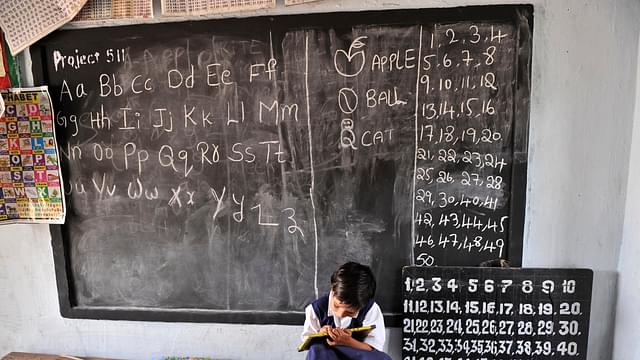 Project 511
Aa Bb Cc Dd Ee Ff
Gg Hh Ii Jj Kk Ll Mm
Nn Oo Pp Qq Rr Ss Tt
Uu Vv Ww Xx Yy Zz
APPLE
BALL
CAT
1, 2, 3, 4
5, 6, 7, 8
9, 10, 11, 12
13, 14, 15, 16
17, 18, 19, 20
21, 22, 23, 24
25, 26, 27, 28
29, 30, 40, 41
42, 43, 44, 45
46, 47, 48, 49
50
1, 2, 3, 4, 5, 6, 7, 8, 9, 10
11, 12, 13, 14, 15, 16, 17, 18, 19, 20.
21, 22, 23, 24, 25, 26, 27, 28, 29, 30.
31, 32, 33, 34, 35, 36, 37, 38, 39, 40.